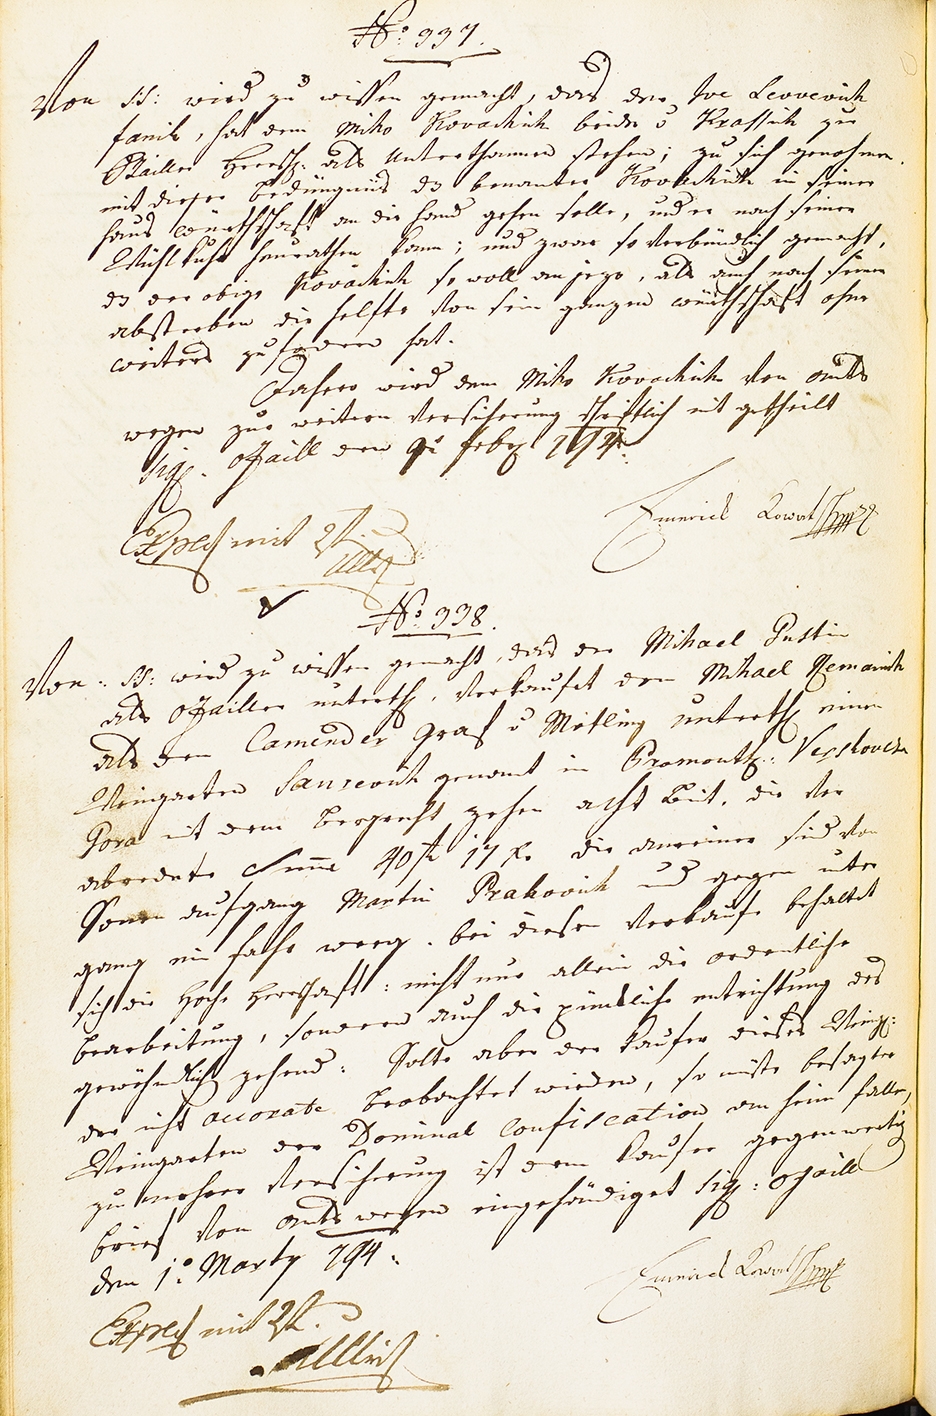 No: 337.
Von H: wird zu wissen gemacht, das der Ive Leovevich
familh, hat dem Miko Kovachich beide v Krassich zur
Ojailler Herrsch: als Unterthannen stehen; zu sich genohmen.
mit dieser Bedüngnüs ds benanter Kovachich in seiner
haus würthschaft an die hand gehen solle, und er nach seiner
heurathen kann; und zwar so verbündlich gemacht,
ds der obige Kovachich so woll an jezo, als auch nach seinem
absterben die helfte von sein ganzen würthschaft ohne
weiters zu fodern hat.
Dahero wird dem Miko Kovachich von Amts
wegen zur weitern Versicherung schriftlich mit getheilt
Sig. Ojaill den 9t Febr 794.
Emerich Kowat
Exped mit 2
No: 338.
Von: H: wird zu wissen gemacht, das der Mihael Pustin
als Ojailler unterth. Verkaufet dem Mihael Nemanich
als dem Camender Graf v Mötling unterth einen
Weingarten Saurcovich genant in Promont: Vejskovska
Gora mit dem bergrecht zehen acht die ver
abredete Suma 40 f 17 xr die anreiner sind von
Sonen aufgang Martin Prahovich und gegen unter
gang ein fahr weeg. bei diesen verkaufe behaltet
sich die Hoche Herrschaft: nicht nur allein die ordentliche
bearbeitung, sondern auch die pünktliche entrichtung des
gewöhndlich zehend: Solte aber der kaufer dieses Weing:
der nicht accorate beobachtet wieden, so müste besagter
Weingarten der Dominal Confiscation an heim fallen,
zu mehrer Versicherung ist dem kaufer gegenwertig
brief von Amts wegen eingehändiget Sig: Ojaill
den 1: Marty 794.
Emerich Kowat
Exped mit 2